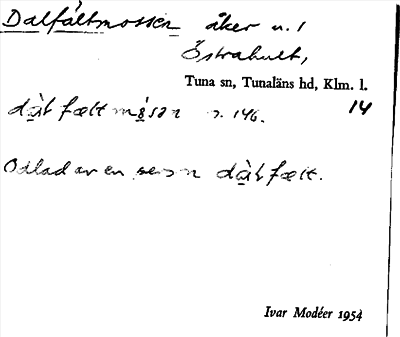 Dalfältmossen åker n. 1
Östrahult,
Tuna sn, Tunaläns hd, Klm. l.
14
dàl fælt 146.
Odlad av en dàl fælt.
Ivar Modéer 1954